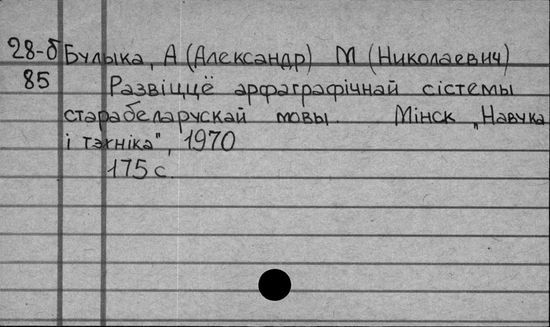 28-б Булыка, А (Александр) М (Николаевич)
85 Развіццё арфаграфічнай сістэмы
старабеларускай мовы. Мінск „Навука
і тэхніка", 1970
175 с.